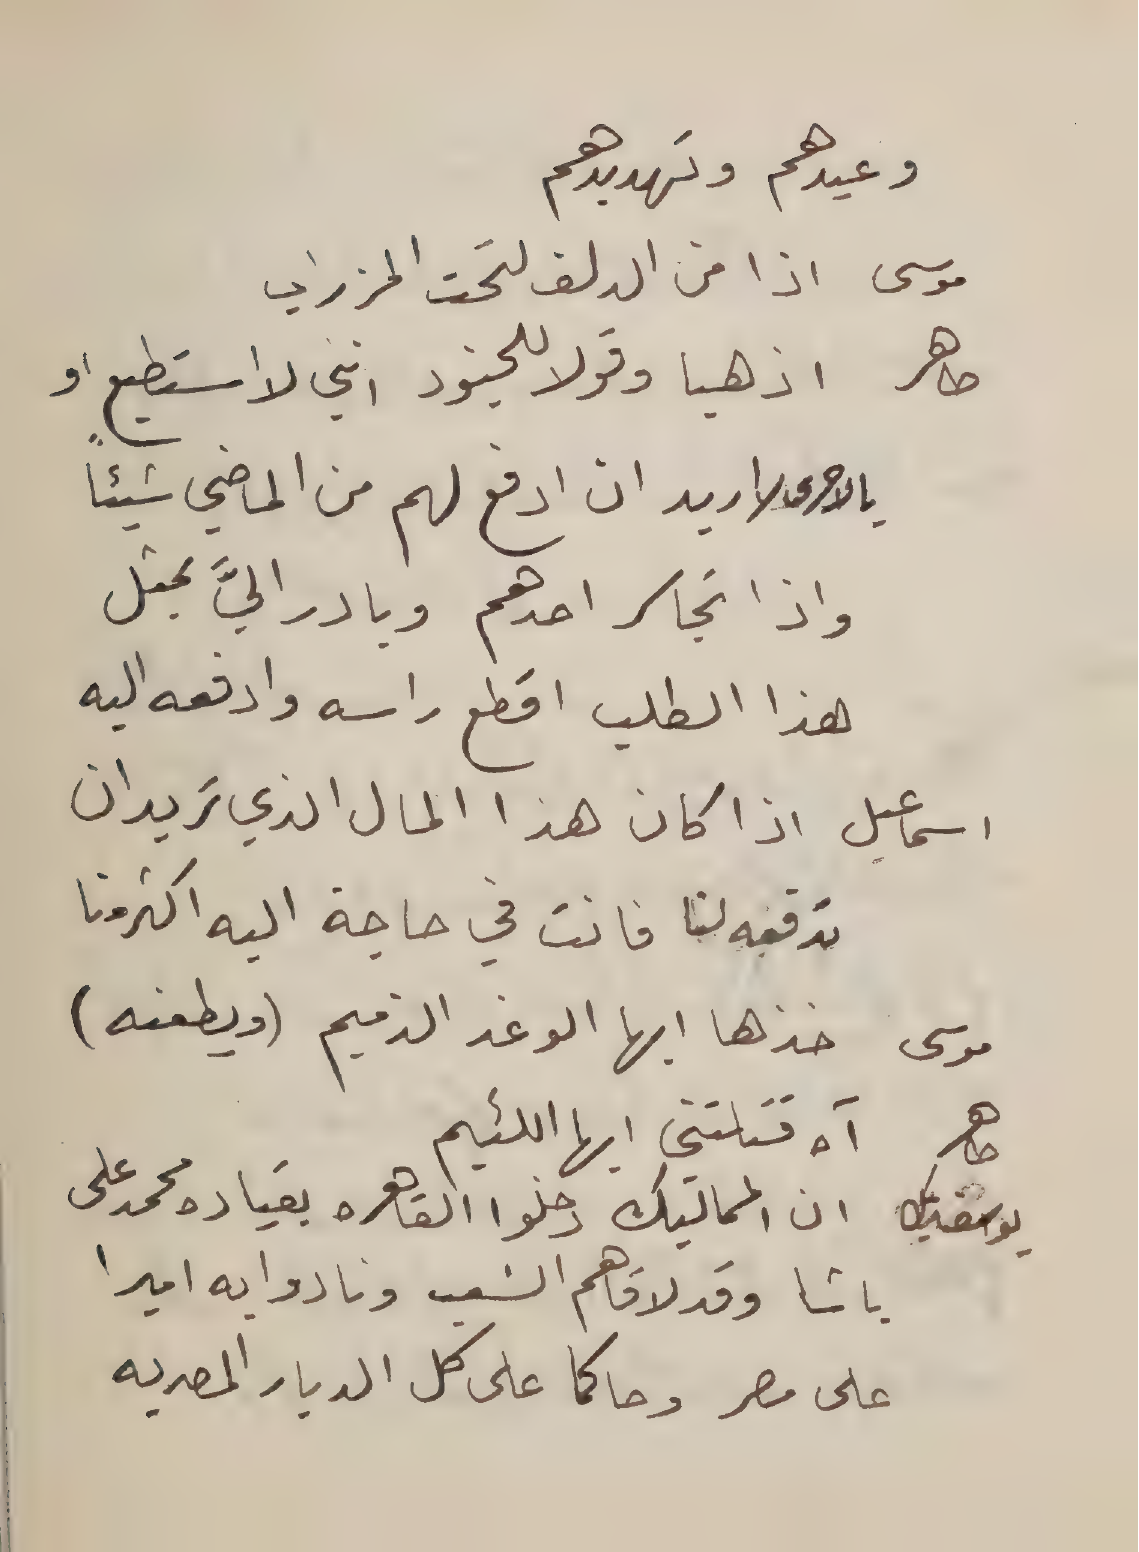 وعيدهم وتهديدهم
موسى اذا من الدلف لتحت المزراب
طاهر اذهبا وقولا للجنود انني لا استطيع او
بالاحرى لا اريد ان ادفع لهم من الماضي شيئاً
واذا تجاسر احدهم وبادر اليَّ بمثل
هذا الطلب اقطع راسه وادفعه اليه
اسماعيل اذا كان هذا المال الذي تريد ان
تدفعه لنا فانت في حاجة اليه اكثر منا
موسى خذها ايها الوغد الذميم (ويطعنه)
طاهر آه قتلتني ايها اللئيم
ان المماليك دخلوا القاهره بقياده محمد على
باشا وقد لاقاهم الشعب ونادوا به اميرا
على مصر وحاكما على كل الديار المصريه